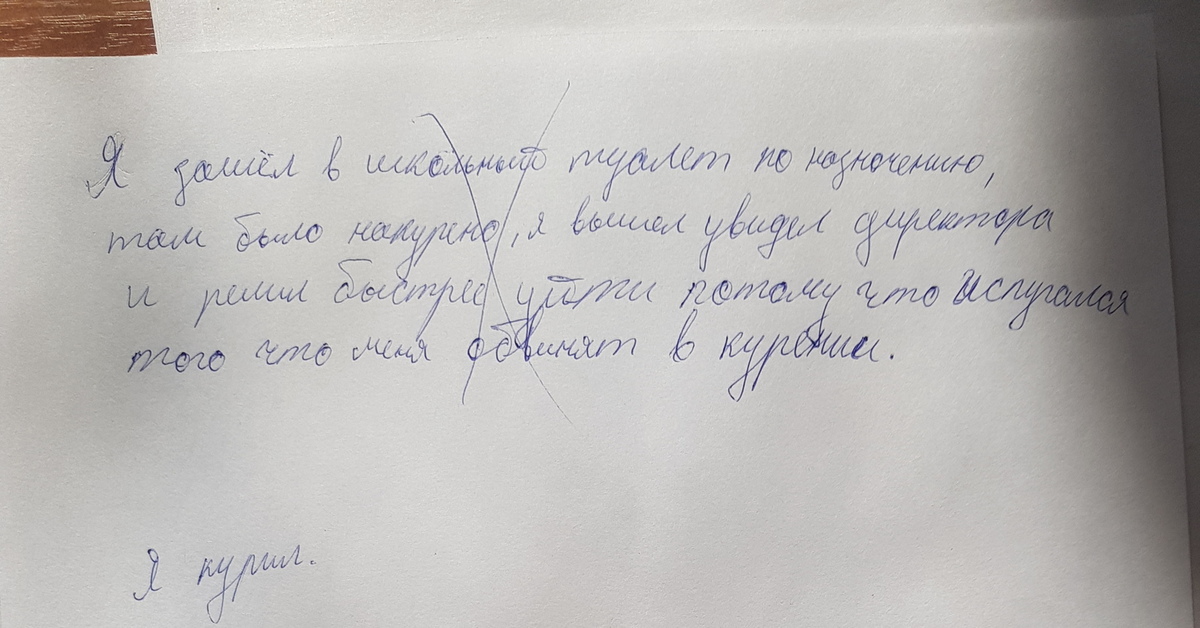 Я зашёл в школьный туалет по назначению,
там было накурено, я вышел увидел директора
и решил быстрее уйти потому что испугался
того что меня обвинят в курении.
Я курил.